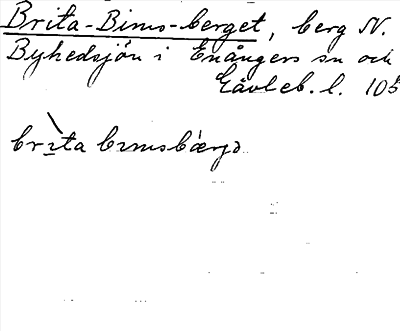 Brita-Bims-berget, berg N.
Byhedsjön i Enångers sn och
Gävleb. l. 105
brìta bimsbærjə